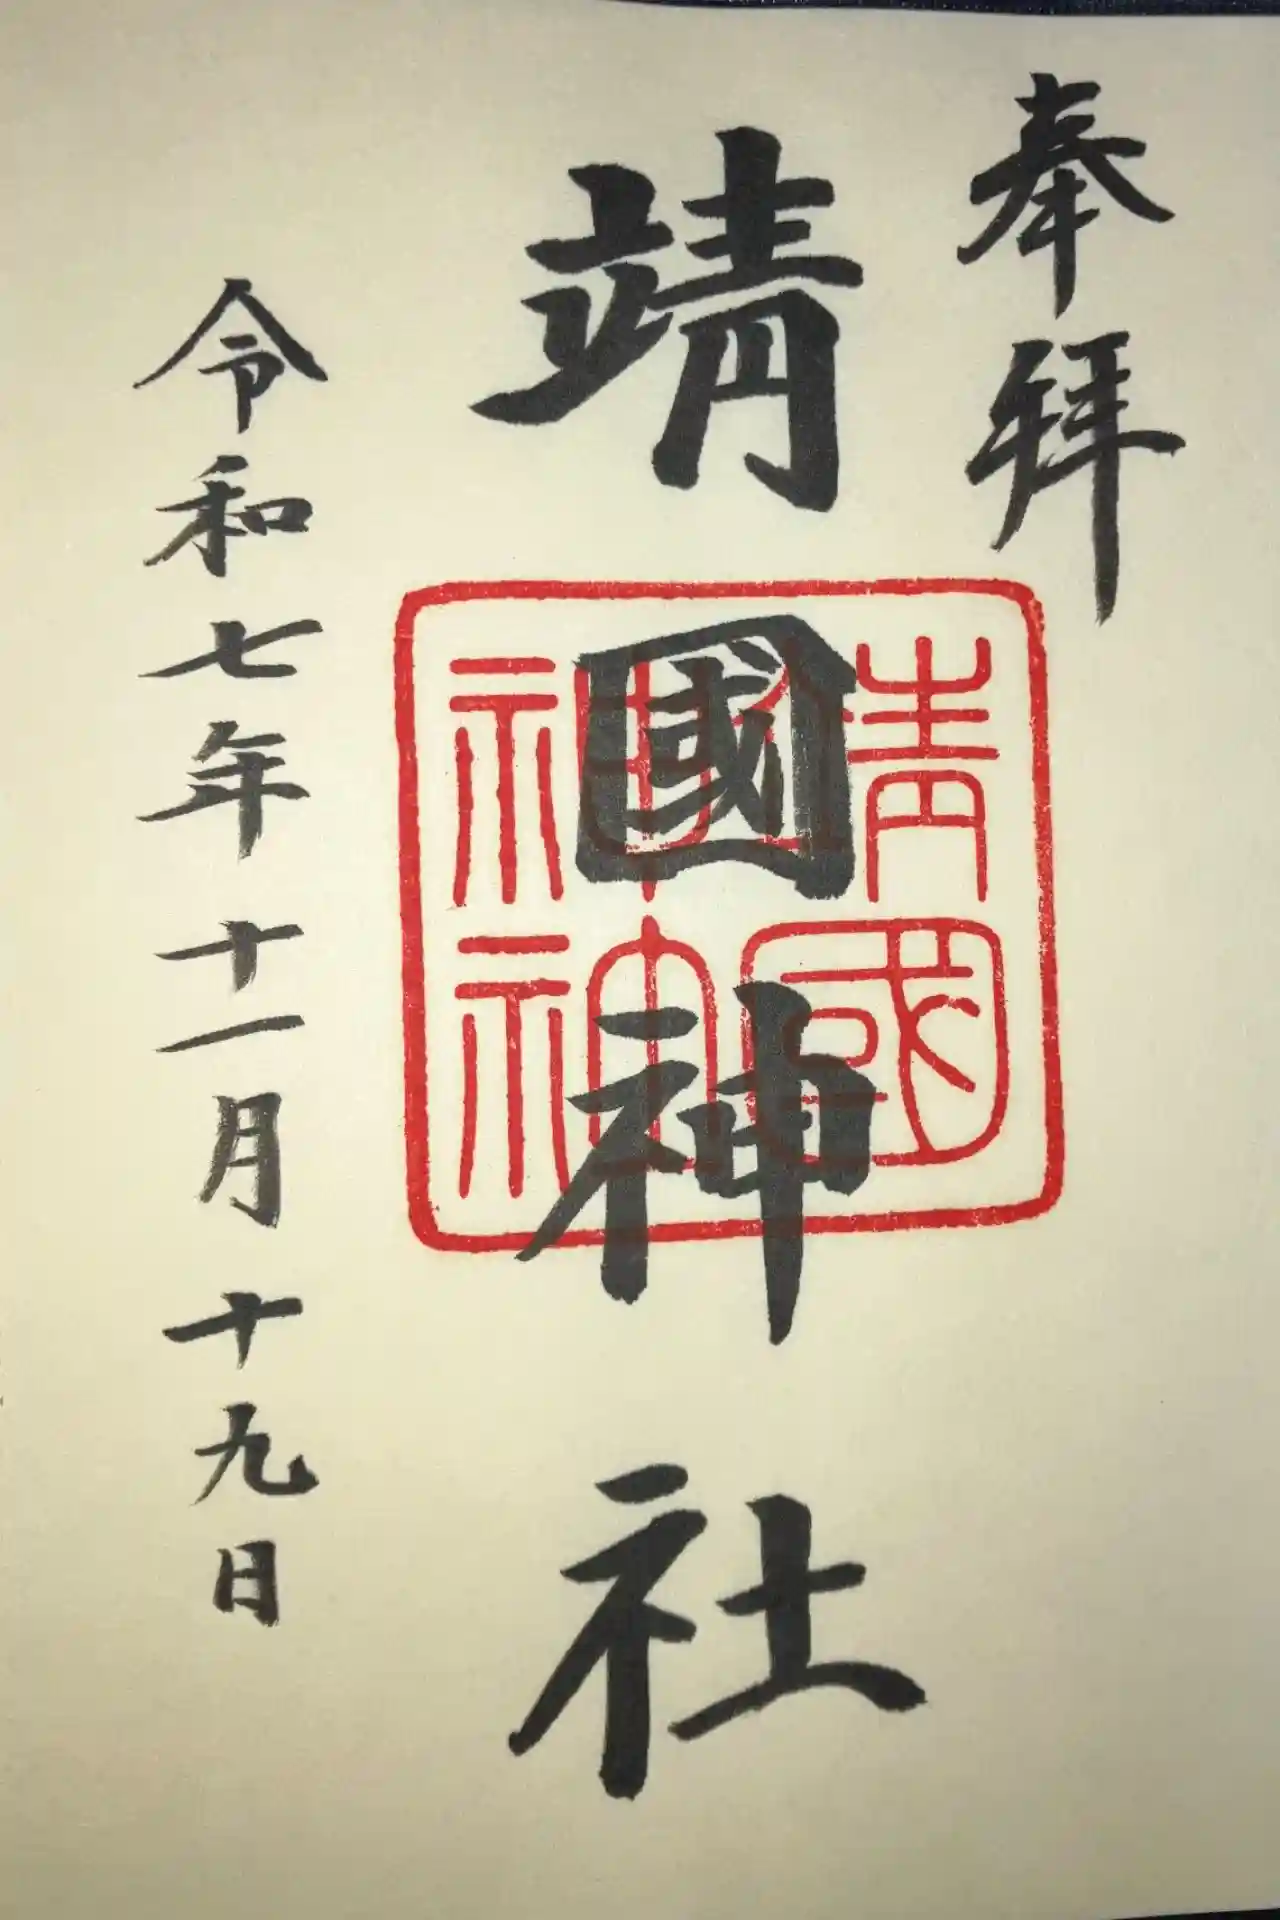 奉拝
靖國神社
靖國神社
令和七年十一月十九日